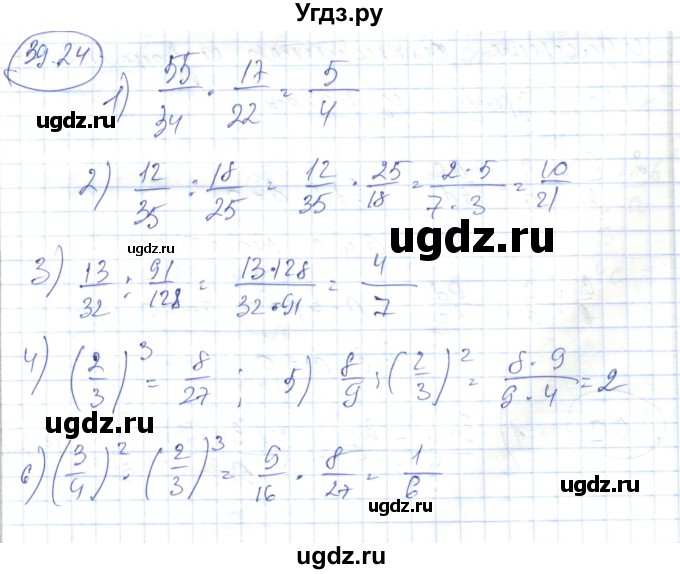 Угдз.ру
39.24
1) 55/34 · 17/22 = 5/4
ugdz.ru ugdz.ru
2) 12/35 : 18/25 = 12/35 · 25/18 = 2·5/7·3 = 10/21
ugdz.ru
ugdz.ru
3) 13/32 : 91/128 = 13·128/32·91 = 4/7
4) (2/3)^3 = 8/27 ; 5) 8/9 : (2/3)^2 = 8·9/9·4 = 2
ugdz.ru ugdz.ru
6) (3/4)^2 · (2/3)^3 = 9/16 · 8/27 = 1/6
ugdz.ru ugdz.ru
ugdz.ru